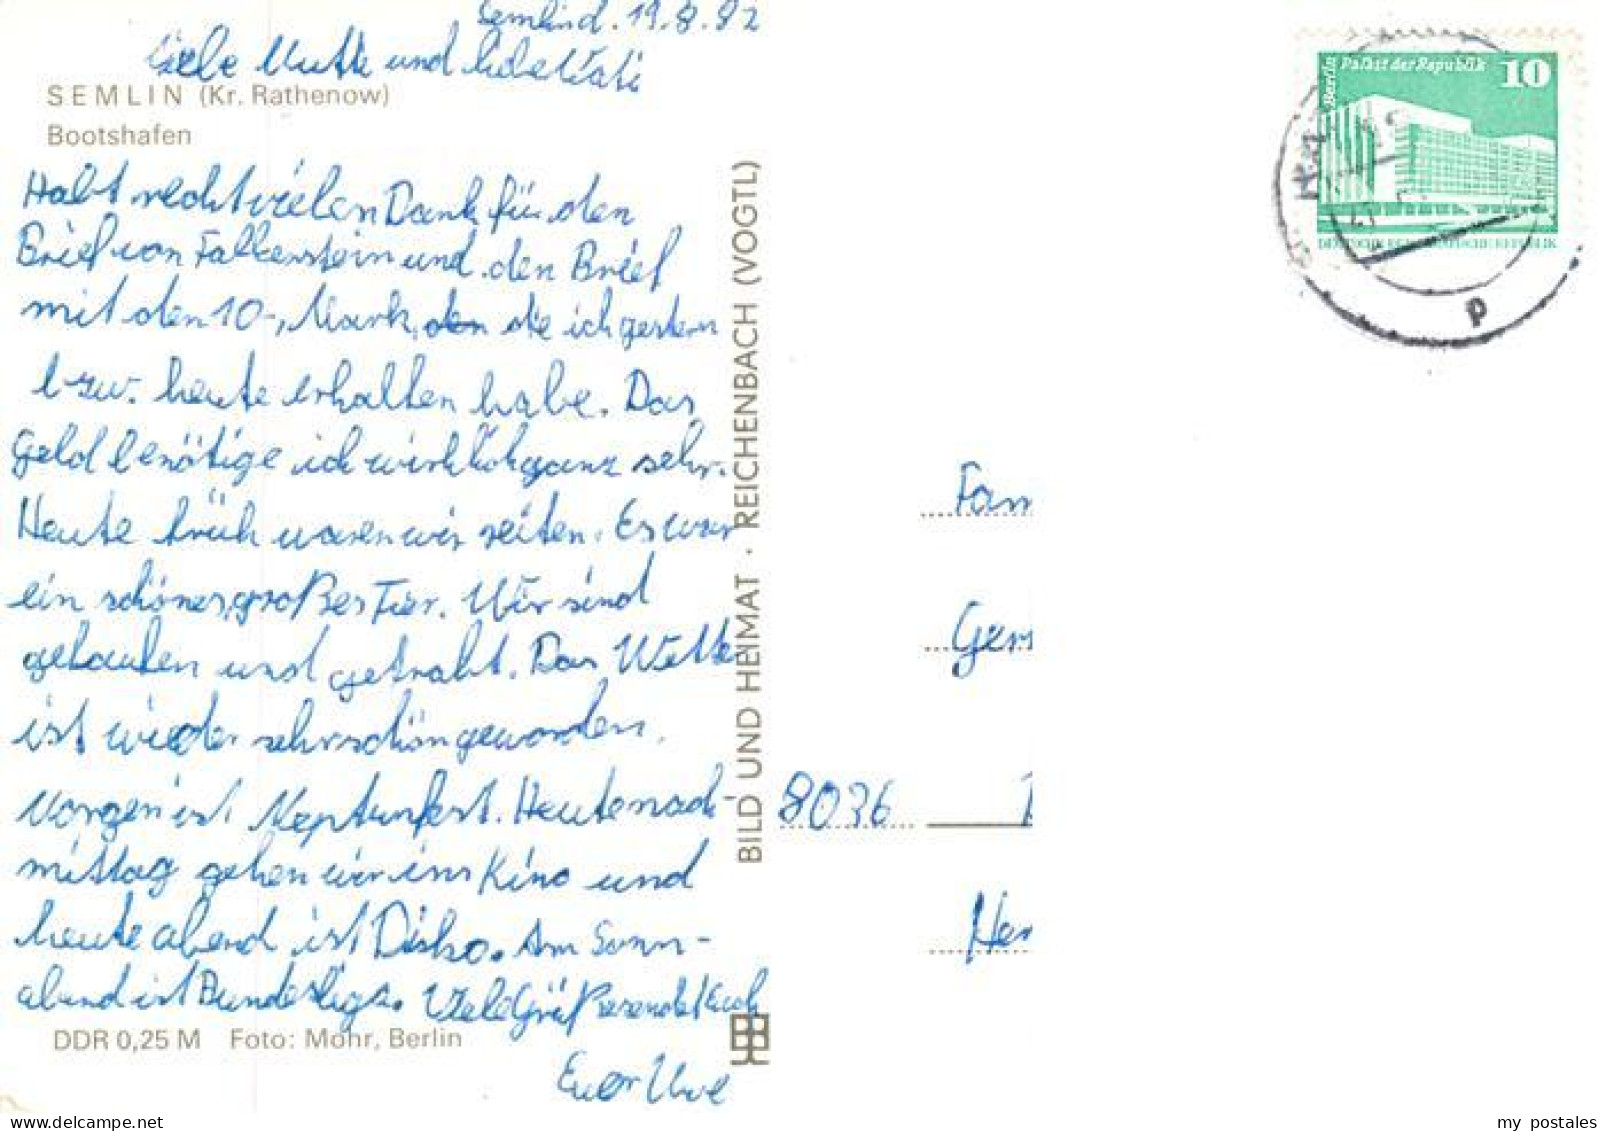 Semlin d. 19.8.82
Liebe Mutti und liebe Kati
SEMLIN (Kr. Rathenow)
Bootshafen
Habt recht vielen Dank für den
Brief von Falkenstein und den Brief
mit den 10,- Mark, den die ich gestern
bzw. heute erhalten habe. Das
Geld benötige ich wirklich ganz sehr.
Heute früh waren wir reiten. Es war
ein schönes, großes Tier. Wir sind
gelaufen und getrabt. Das Wetter
ist wieder sehr schön geworden.
Morgen ist Neptunfest. Heute nach-
mittag gehen wir ins Kino und
heute abend ist Disko. Am Sonn-
abend ist Bundesliga. Viele Grüße sendet Euch
Euer Uwe
DDR 0,25 M Foto: Mohr, Berlin
BILD UND HEIMAT · REICHENBACH (VOGTL)
Berlin Palast der Republik 10
DEUTSCHE DEMOKRATISCHE REPUBLIK
p
Fam
Gers
8036
Her
my postales